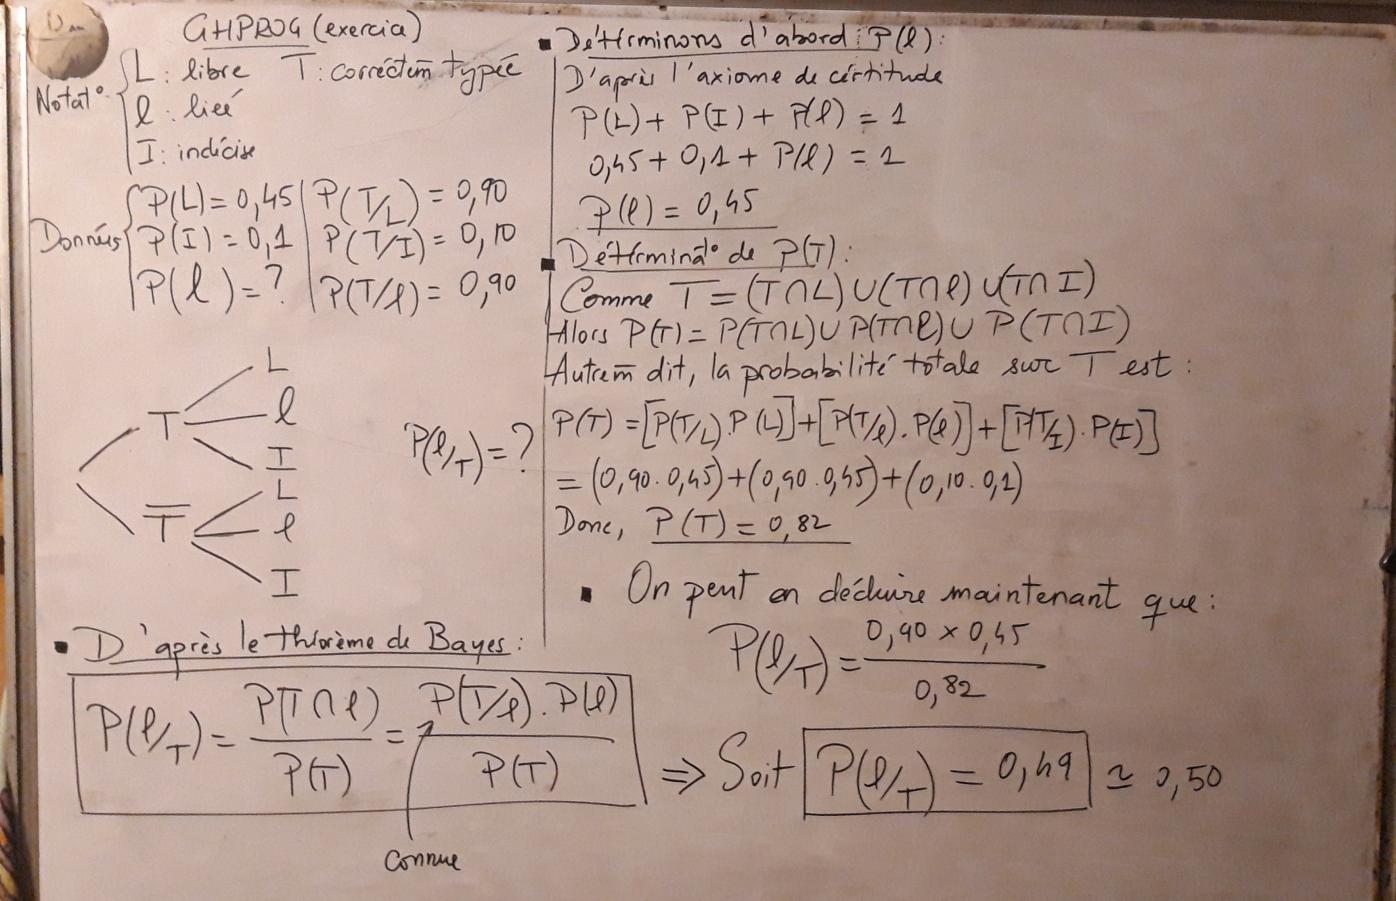 GHPROG (exercice)
Notat° L : libre T : correctem̄ typée
l : lieé
I : indécise
Données P(L) = 0,45 P(T/L) = 0,90
P(I) = 0,1 P(T/I) = 0,10
P(l) = ? P(T/l) = 0,90
T
L
l
I
T̄
L
l
I
P(l/T) = ?
▪ D'après le théorème de Bayes :
P(l/T) = P(T∩l) / P(T) = P(T/l) . P(l) / P(T)
Connue
▪ Déterminons d'abord : P(l) :
D'après l'axiome de certitude
P(L) + P(I) + P(l) = 1
0,45 + 0,1 + P(l) = 1
P(l) = 0,45
▪ Déterminat° de P(T) :
Comme T = (T∩L) ∪ (T∩l) ∪ (T∩I)
Alors P(T) = P(T∩L) ∪ P(T∩l) ∪ P(T∩I)
Autrem̄ dit, la probabilité totale sur T est :
P(T) = [P(T/L) . P(L)] + [P(T/l) . P(l)] + [P(T/I) . P(I)]
= (0,90 . 0,45) + (0,90 . 0,45) + (0,10 . 0,1)
Donc, P(T) = 0,82
▪ On peut en déduire maintenant que :
P(l/T) = 0,90 × 0,45 / 0,82
⇒ Soit P(l/T) = 0,49 ≃ 0,50